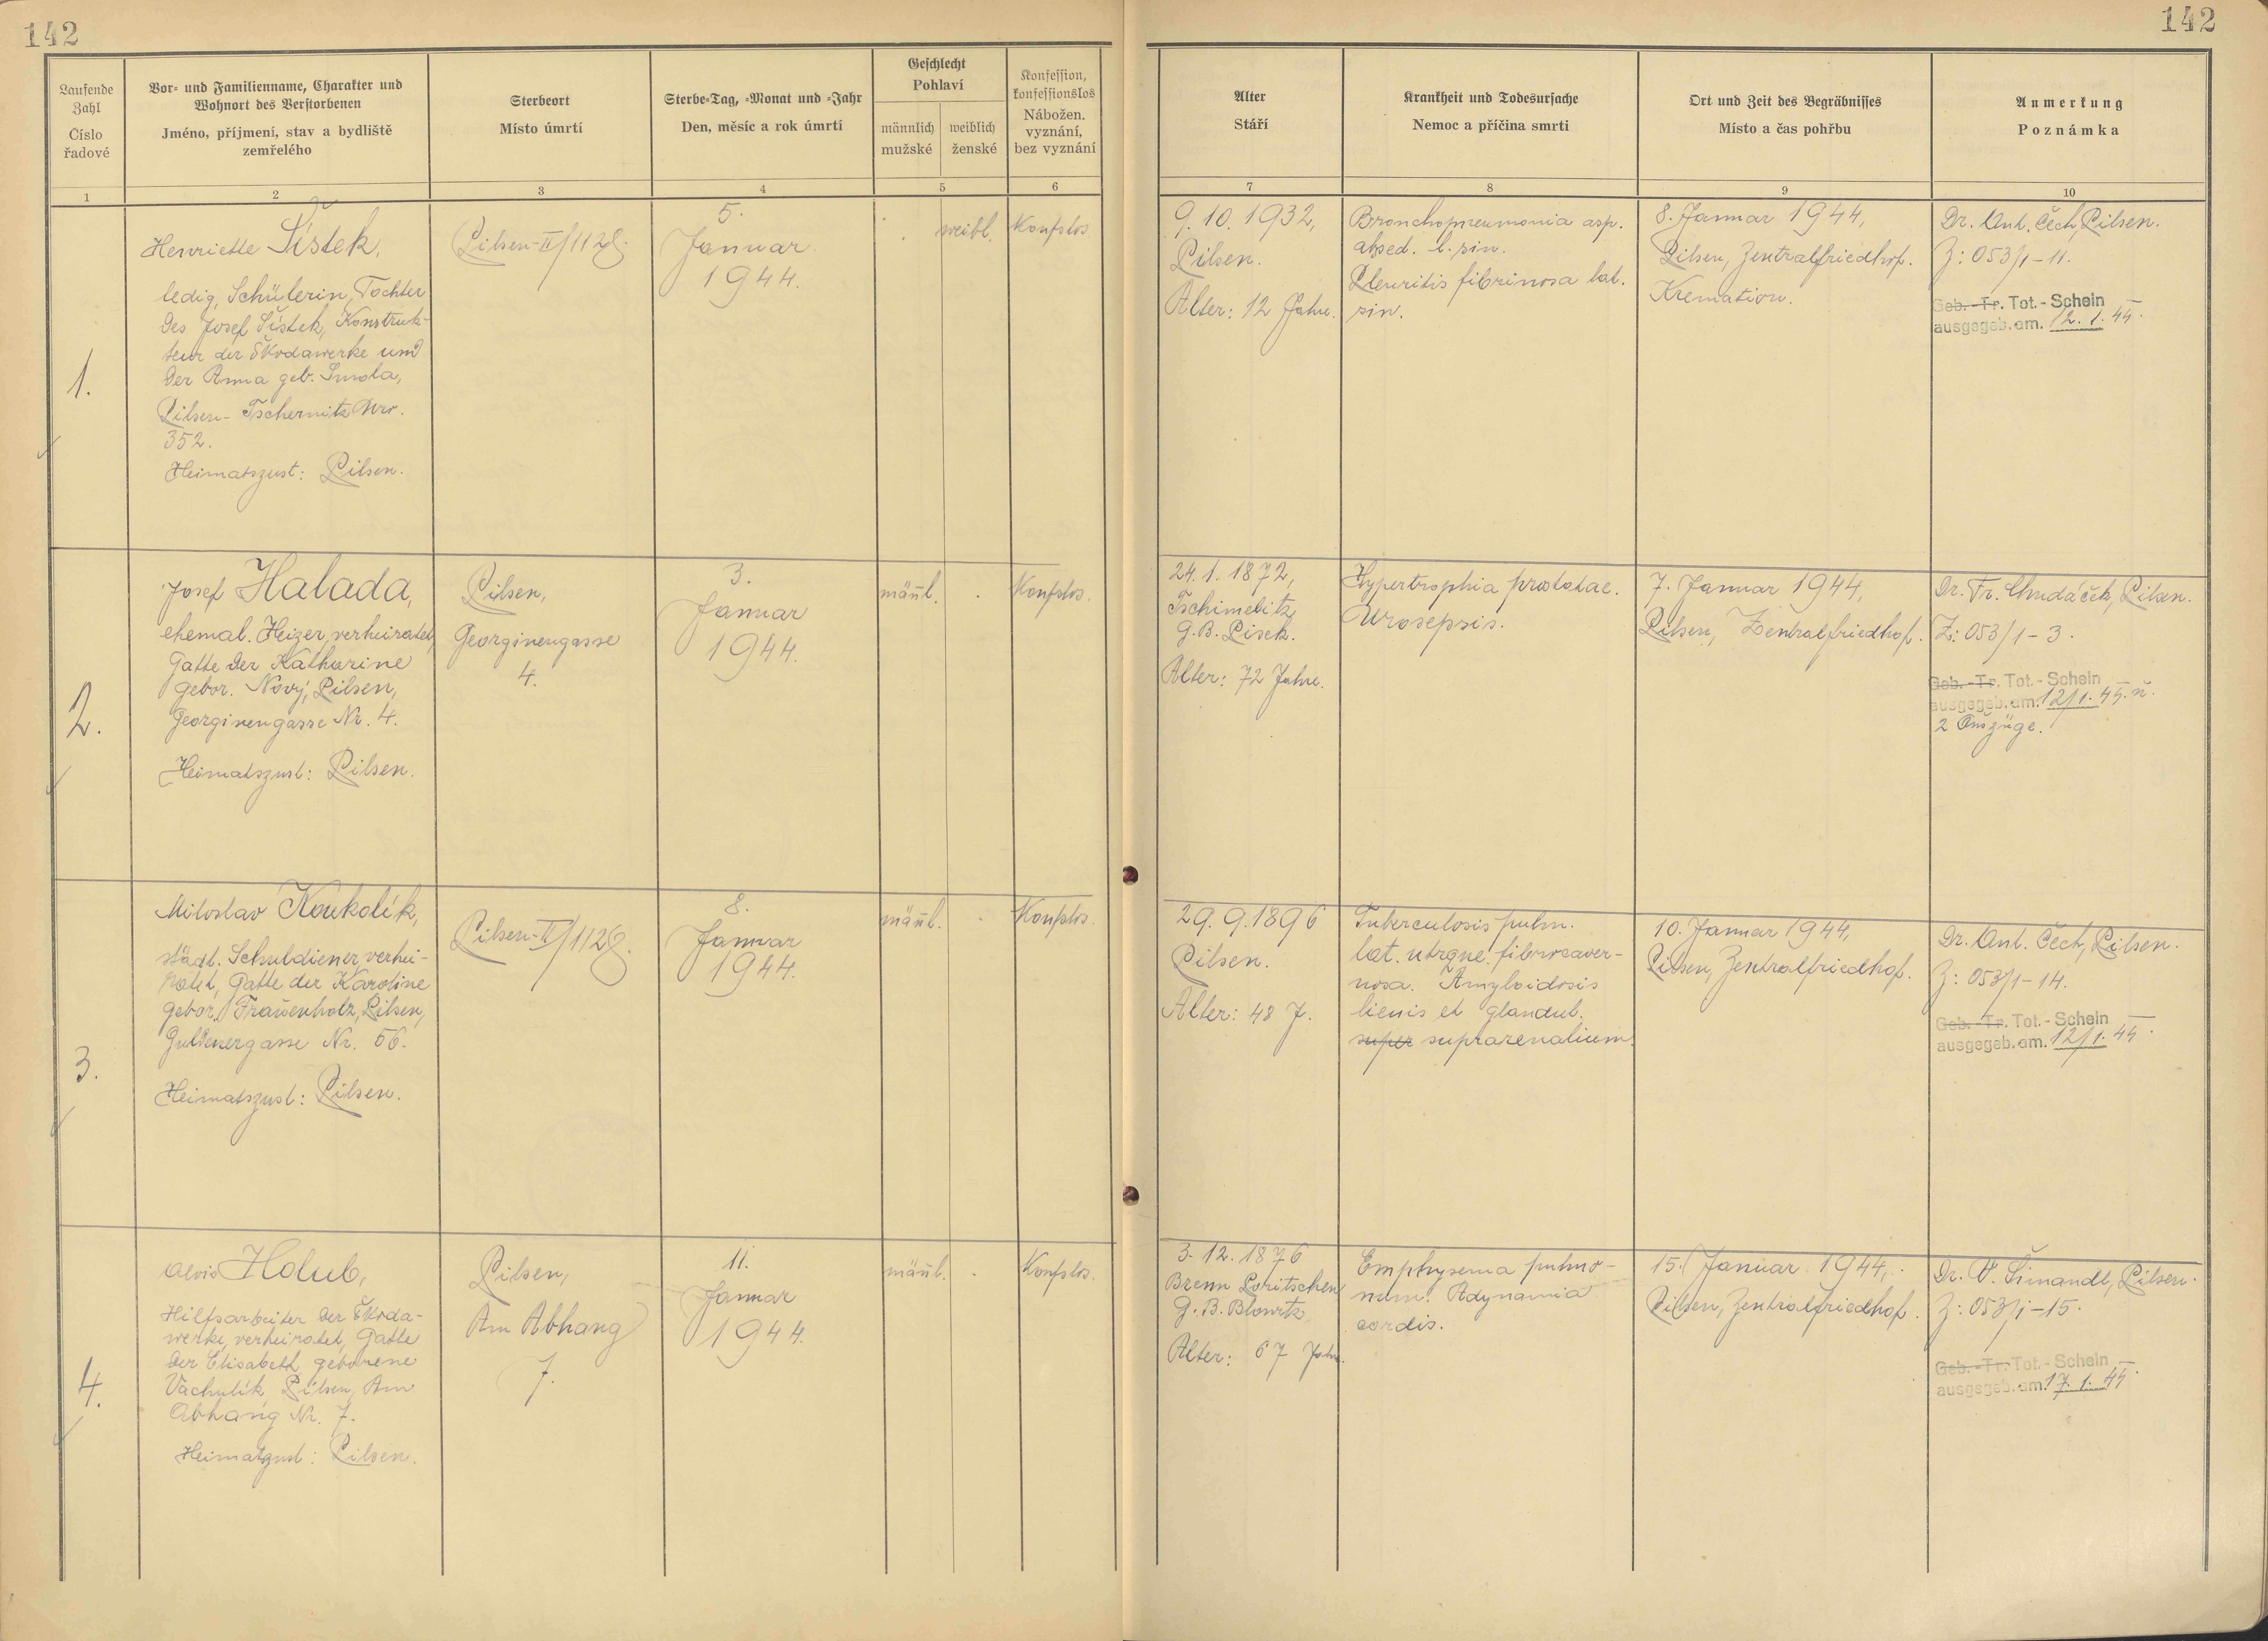 142
142
Laufende
Zahl
Číslo
řadové
Vor- und Familienname, Charakter und
Wohnort des Verstorbenen
Jméno, příjmení, stav a bydliště
zemřelého
Sterbeort
Místo úmrtí
Sterbe-Tag, -Monat und -Jahr
Den, měsíc a rok úmrtí
Geschlecht
Pohlaví
männlich
mužské
weiblich
ženské
Konfession,
konfessionslos
Nábožen.
vyznání,
bez vyznání
Alter
Stáří
Krankheit und Todesursache
Nemoc a příčina smrti
Ort und Zeit des Begräbnisses
Místo a čas pohřbu
Anmerkung
Poznámka
1
2
3
4
5
6
7
8
9
10
1.
Henriette Šístek,
ledig, Schülerin, Tochter
des Josef Šístek, Konstruk-
teur der Škodawerke und
der Anna geb. Smola,
Pilsen- Tschernitz Nro.
352.
Heimatszust: Pilsen.
Pilsen-II/1128.
5.
Januar
1944.
weibl.
Konfslos
9. 10. 1932,
Pilsen.
Alter: 12 Jahre.
Bronchopneumonia asp.
absed. l. sin.
Pleuritis fibrinosa lat.
sin.
8. Januar 1944,
Pilsen, Zentralfriedhof.
Kremation.
Dr. Ant. Čech, Pilsen.
Z: 053/1-11.
Geb. -Tr. Tot. - Schein
ausgegeb. am. 12. 1. 44.
2.
Josef Halada,
ehemal. Heizer, verheiratet,
Gatte der Katharine
gebor. Nový, Pilsen,
Georginengasse Nr. 4.
Heimatszust: Pilsen.
Pilsen,
Georginengasse
4.
3.
Januar
1944.
männl.
Konfslos.
24. 1. 1872,
Tschimelitz
G.B. Pisek.
Alter: 72 Jahre.
Hypertrophia prostatae.
Urosepsis.
7. Januar 1944,
Pilsen, Zentralfriedhof.
Dr. Fr. Chudáček, Pilsen.
Z: 053/1-3.
Geb. -Tr. Tot. - Schein
ausgegeb. am. 12/1. 44. u.
2 Auszüge.
3.
Miloslav Koukolík,
städt. Schuldiener, verhei-
ratet, Gatte der Karoline
gebor. Frauenholz, Pilsen,
Guldenergasse Nr. 56.
Heimatszust: Pilsen.
Pilsen-II/1128.
8.
Januar
1944.
männl.
Konfslos.
29. 9. 1896
Pilsen.
Alter: 48 J.
Tuberculosis pulm.
lat. utrque. fibrocaver-
nosa. Amyloidosis
lienis et glandul.
super suprarenalium.
10. Januar 1944,
Pilsen, Zentralfriedhof.
Dr. Ant. Čech, Pilsen.
Z: 053/1-14.
Geb. -Tr. Tot. - Schein
ausgegeb. am. 12/1. 44.
4.
Alois Holub,
Hilfsarbeiter der Škoda-
werke, verheiratet, Gatte
der Elisabeth geborene
Vachulík Pilsen, Am
Abhang Nr. 7.
Heimatzust: Pilsen.
Pilsen,
Am Abhang
7.
11.
Januar
1944.
männl.
Konfslos.
3. 12. 1876
Brenn Poritschen
G. B. Blowitz
Alter: 67 Jahre.
Emphysema pulmo-
num. Adynamia
cordis.
15. Januar 1944,
Pilsen, Zentralfriedhof.
Dr. V. Šimandl, Pilsen.
Z: 053/1-15.
Geb. -Tr. Tot. - Schein
ausgegeb. am. 17. 1. 44.